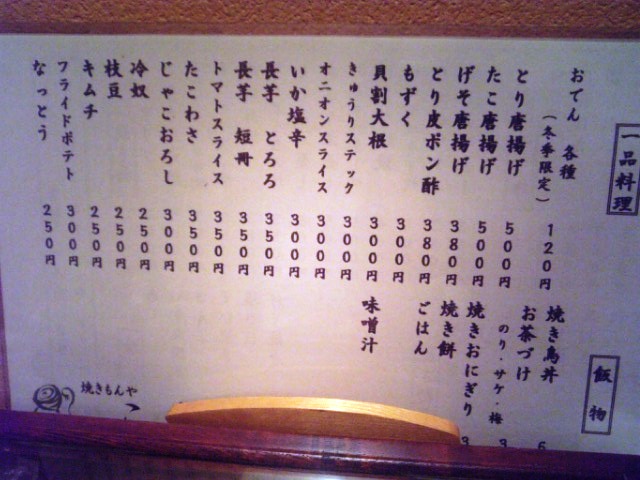 一品料理
おでん 各種
(冬季限定) 120円
とり唐揚げ 500円
たこ唐揚げ 500円
げそ唐揚げ 380円
とり皮ポン酢 380円
もずく 300円
貝割大根 300円
きゅうりステック 300円
オニオンスライス 300円
いか塩辛 300円
長芋 とろろ 350円
長芋 短冊 350円
トマトスライス 300円
たこわさ 350円
じゃこおろし 300円
冷奴 250円
枝豆 250円
キムチ 250円
フライドポテト 300円
なっとう 250円
飯物
焼き鳥丼 6
お茶づけ
のり・サケ・梅 3
焼きおにぎり 3
焼き餅
ごはん
味噌汁
焼きもんや